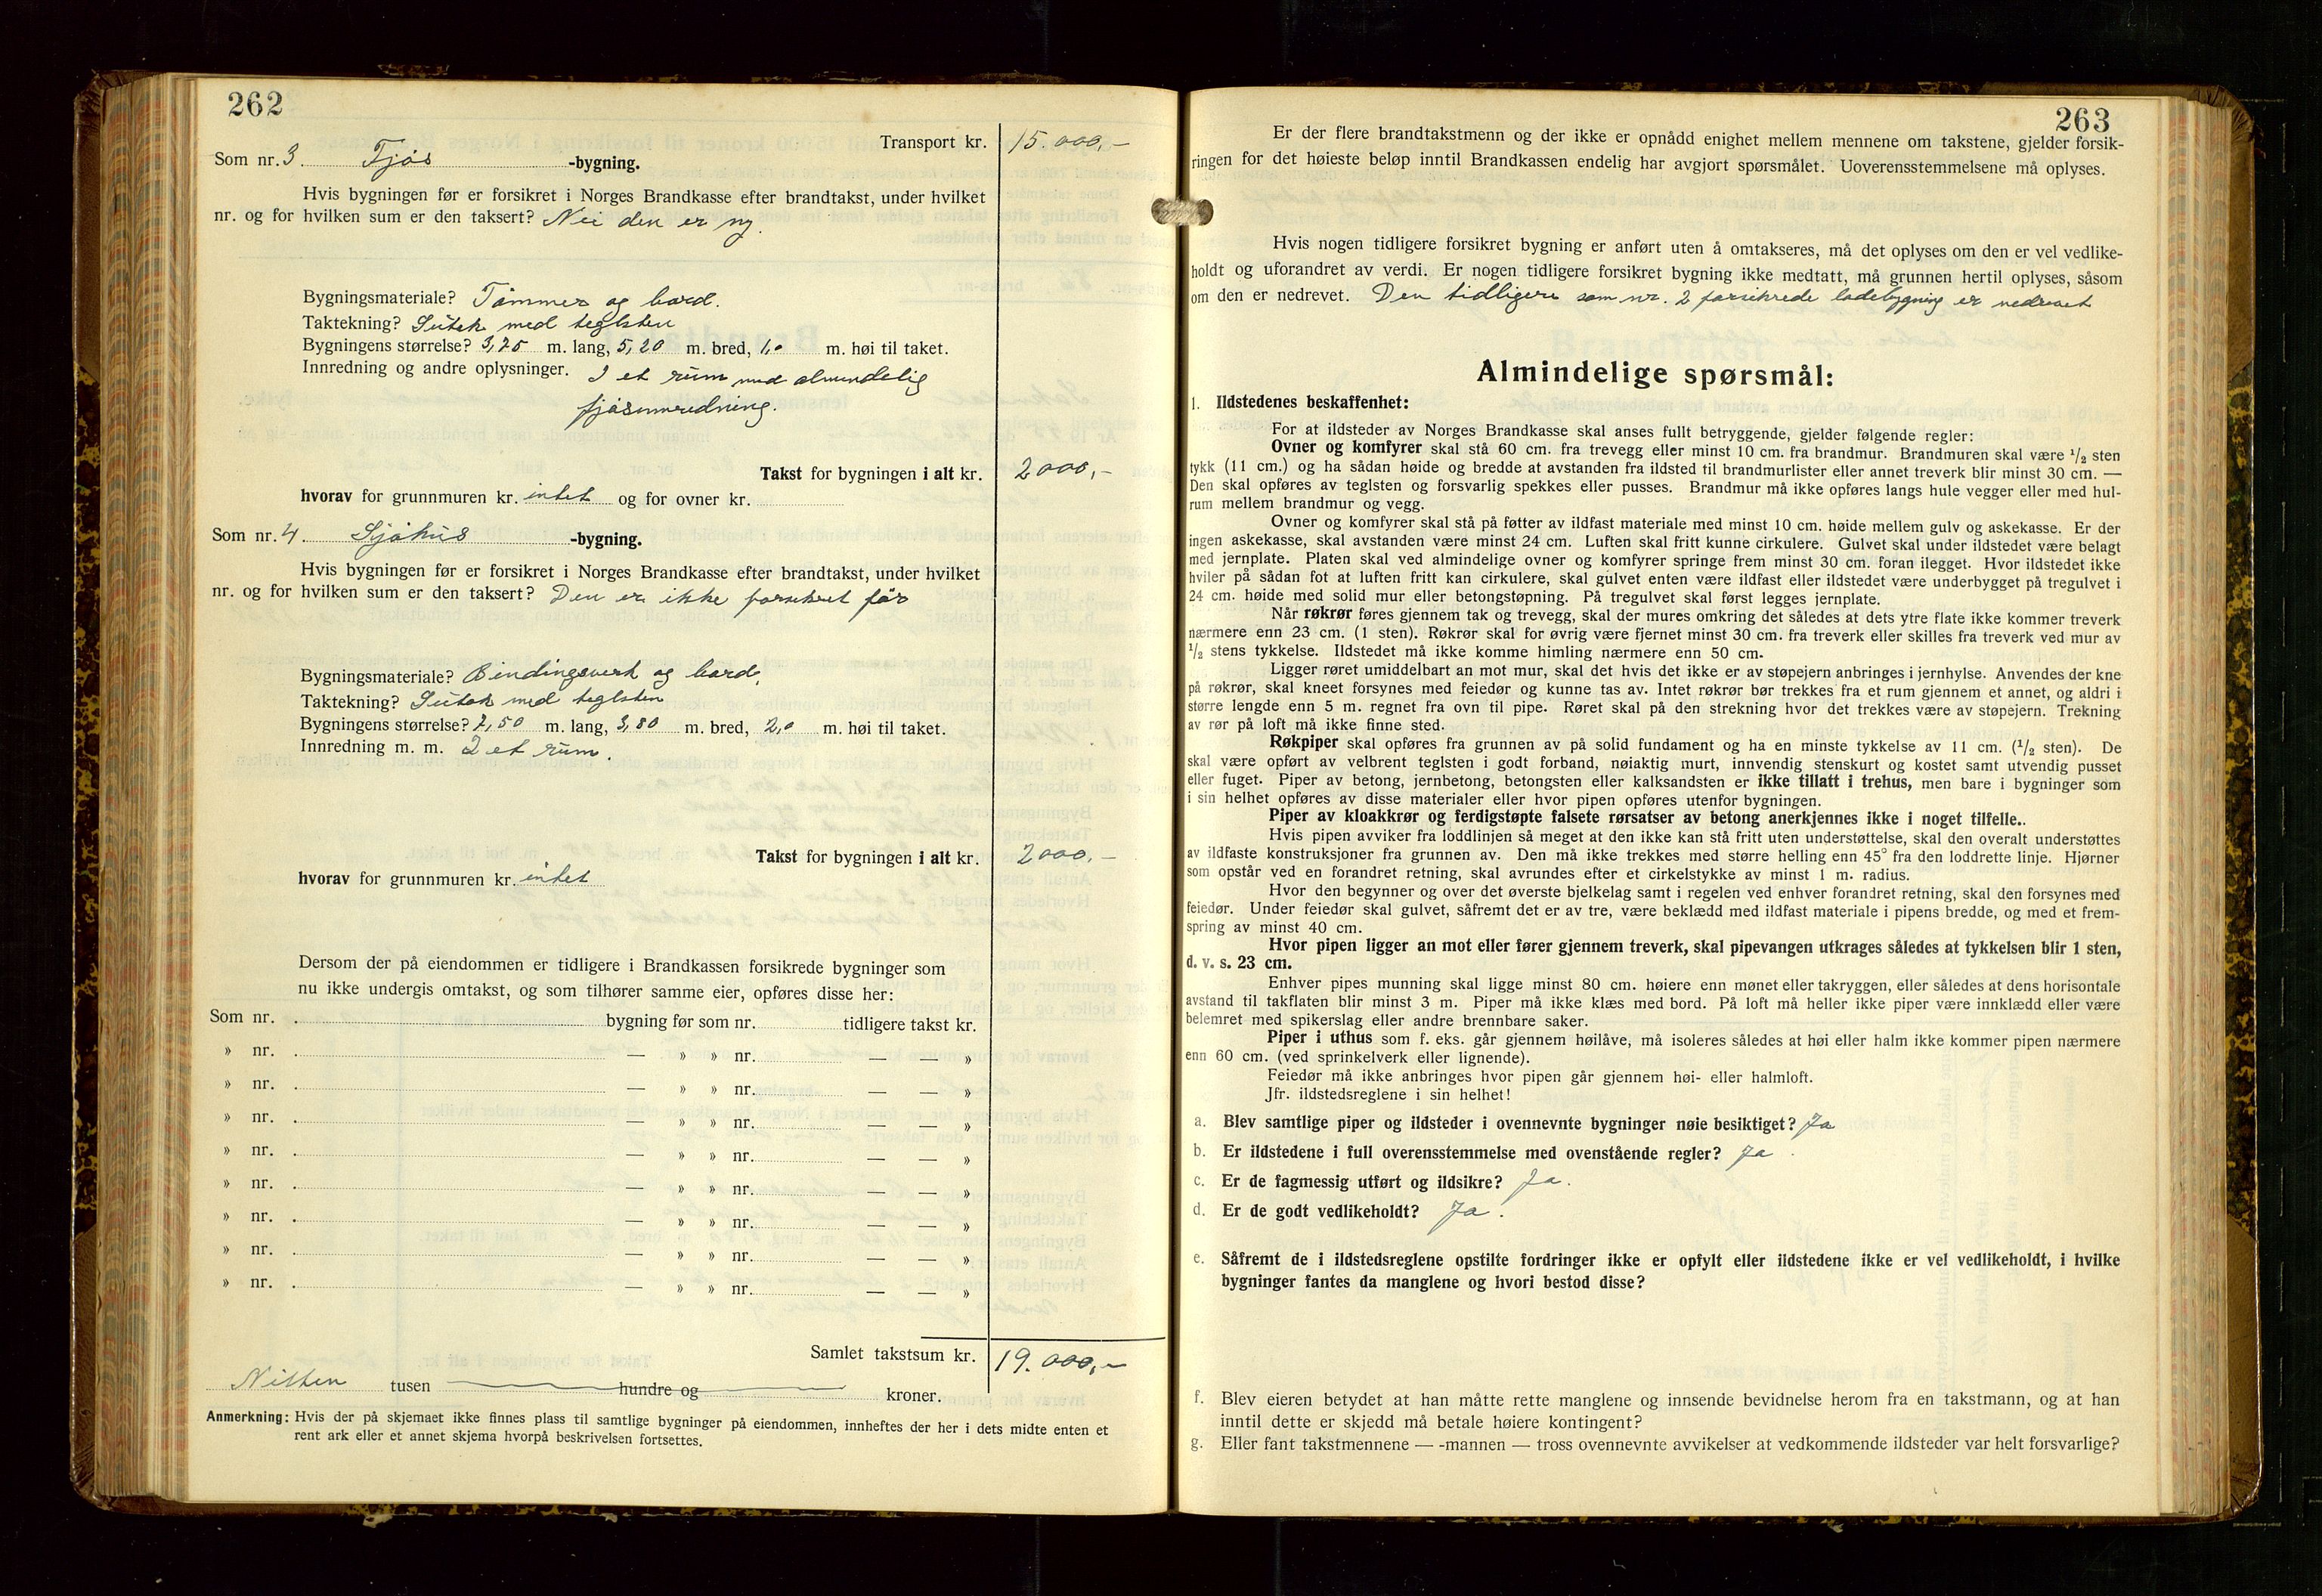 262
Transport kr. 15.000,-
Som nr. 3. Fjøs -bygning.
Hvis bygningen før er forsikret i Norges Brandkasse efter brandtakst, under hvilket
nr. og for hvilken sum er den taksert? Nei den er ny.
Bygningsmateriale? Tømmer og bord.
Taktekning? Sutak med teglsten
Bygningens størrelse? 3,75 m. lang, 5,20 m. bred, 1,0 m. høi til taket.
Innredning og andre oplysninger. I et rum med almindelig
fjøsinnredning.
Takst for bygningen i alt kr. 2000,-
hvorav for grunnmuren kr. intet og for ovner kr.
Som nr. 4. Sjøhus -bygning.
Hvis bygningen før er forsikret i Norges Brandkasse efter brandtakst, under hvilket
nr. og for hvilken sum er den taksert? Den er ikke forsikret før
Bygningsmateriale? Bindingsverk og bord.
Taktekning? Sutak med teglsten
Bygningens størrelse? 7,50 m. lang, 3,80 m. bred, 2,0 m. høi til taket.
Innredning m. m. I et rum.
Takst for bygningen i alt kr. 2000,-
hvorav for grunnmuren kr. intet
Dersom der på eiendommen er tidligere i Brandkassen forsikrede bygninger som
nu ikke undergis omtakst, og som tilhører samme eier, opføres disse her:
Som nr. bygning før som nr. tidligere takst kr.
» nr. — » » nr. — — »
» nr. — » » nr. — — »
» nr. — » » nr. — — »
» nr. — » » nr. — — »
» nr. — » » nr. — — »
» nr. — » » nr. — — »
» nr. — » » nr. — — »
» nr. — » » nr. — — »
Samlet takstsum kr. 19.000,-
Nitten tusen hundre og kroner.
Anmerkning: Hvis der på skjemaet ikke finnes plass til samtlige bygninger på eiendommen, innheftes der her i dets midte enten et
rent ark eller et annet skjema hvorpå beskrivelsen fortsettes.
263
Er der flere brandtakstmenn og der ikke er opnådd enighet mellem mennene om takstene, gjelder forsik-
ringen for det høieste beløp inntil Brandkassen endelig har avgjort spørsmålet. Uoverensstemmelsene må oplyses.
Hvis nogen tidligere forsikret bygning er anført uten å omtakseres, må det oplyses om den er vel vedlike-
holdt og uforandret av verdi. Er nogen tidligere forsikret bygning ikke medtatt, må grunnen hertil oplyses, såsom
om den er nedrevet. Den tidligere som nr. 2 forsikrede ladebygning er nedrevet
Almindelige spørsmål:
1. Ildstedenes beskaffenhet:
For at ildsteder av Norges Brandkasse skal anses fullt betryggende, gjelder følgende regler:
Ovner og komfyrer skal stå 60 cm. fra trevegg eller minst 10 cm. fra brandmur. Brandmuren skal være ½ sten
tykk (11 cm.) og ha sådan høide og bredde at avstanden fra ildsted til brandmurlister eller annet treverk blir minst 30 cm. —
Den skal opføres av teglsten og forsvarlig spekkes eller pusses. Brandmur må ikke opføres langs hule vegger eller med hul-
rum mellem brandmur og vegg.
Ovner og komfyrer skal stå på føtter av ildfast materiale med minst 10 cm. høide mellem gulv og askekasse. Er der
ingen askekasse, skal avstanden være minst 24 cm. Luften skal fritt kunne cirkulere. Gulvet skal under ildstedet være belagt
med jernplate. Platen skal ved almindelige ovner og komfyrer springe frem minst 30 cm. foran ilegget. Hvor ildstedet ikke
hviler på sådan fot at luften fritt kan cirkulere, skal gulvet enten være ildfast eller ildstedet være underbygget på tregulvet i
24 cm. høide med solid mur eller betongstøpning. På tregulvet skal først legges jernplate.
Når røkrør føres gjennem tak og trevegg, skal der mures omkring det således at dets ytre flate ikke kommer treverk
nærmere enn 23 cm. (1 sten). Røkrør skal for øvrig være fjernet minst 30 cm. fra treverk eller skilles fra treverk ved mur av
½ stens tykkelse. Ildstedet må ikke komme himling nærmere enn 50 cm.
Ligger røret umiddelbart an mot mur, skal det hvis det ikke er av støpejern anbringes i jernhylse. Anvendes der kne
på røkrør, skal kneet forsynes med feiedør og kunne tas av. Intet røkrør bør trekkes fra et rum gjennem et annet, og aldri i
større lengde enn 5 m. regnet fra ovn til pipe. Røret skal på den strekning hvor det trekkes være av støpejern. Trekning
av rør på loft må ikke finne sted.
Røkpiper skal opføres fra grunnen av på solid fundament og ha en minste tykkelse av 11 cm. (½ sten). De
skal være opført av velbrent teglsten i godt forband, nøiaktig murt, innvendig stenskurt og kostet samt utvendig pusset
eller fuget. Piper av betong, jernbetong, betongsten eller kalksandsten er ikke tillatt i trehus, men bare i bygninger som
i sin helhet opføres av disse materialer eller hvor pipen opføres utenfor bygningen.
Piper av kloakkrør og ferdigstøpte falsete rørsatser av betong anerkjennes ikke i noget tilfelle..
Hvis pipen avviker fra loddlinjen så meget at den ikke kan stå fritt uten understøttelse, skal den overalt understøttes
av ildfaste konstruksjoner fra grunnen av. Den må ikke trekkes med større helling enn 45° fra den loddrette linje. Hjørner
som opstår ved en forandret retning, skal avrundes efter et cirkelstykke av minst 1 m. radius.
Hvor den begynner og over det øverste bjelkelag samt i regelen ved enhver forandret retning, skal den forsynes med
feiedør. Under feiedør skal gulvet, såfremt det er av tre, være beklædd med ildfast materiale i pipens bredde, og med et frem-
spring av minst 40 cm.
Hvor pipen ligger an mot eller fører gjennem treverk, skal pipevangen utkrages således at tykkelsen blir 1 sten,
d. v. s. 23 cm.
Enhver pipes munning skal ligge minst 80 cm. høiere enn mønet eller takryggen, eller således at dens horisontale
avstand til takflaten blir minst 3 m. Piper må ikke klæs med bord. På loft må heller ikke piper være innklædd eller være
belemret med spikerslag eller andre brennbare saker.
Piper i uthus som f. eks. går gjennem høilåve, må isoleres således at høi eller halm ikke kommer pipen nærmere
enn 60 cm. (ved sprinkelverk eller lignende).
Feiedør må ikke anbringes hvor pipen går gjennem høi- eller halmloft.
Jfr. ildstedsreglene i sin helhet!
a. Blev samtlige piper og ildsteder i ovennevnte bygninger nøie besiktiget? Ja
b. Er ildstedene i full overensstemmelse med ovenstående regler? Ja.
c. Er de fagmessig utført og ildsikre? Ja.
d. Er de godt vedlikeholdt? Ja.
e. Såfremt de i ildstedsreglene opstilte fordringer ikke er opfylt eller ildstedene ikke er vel vedlikeholdt, i hvilke
bygninger fantes da manglene og hvori bestod disse?
f. Blev eieren betydet at han måtte rette manglene og innsende bevidnelse herom fra en takstmann, og at han
inntil dette er skjedd må betale høiere kontingent?
g. Eller fant takstmennene — -mannen — tross ovennevnte avvikelser at vedkommende ildsteder var helt forsvarlige?